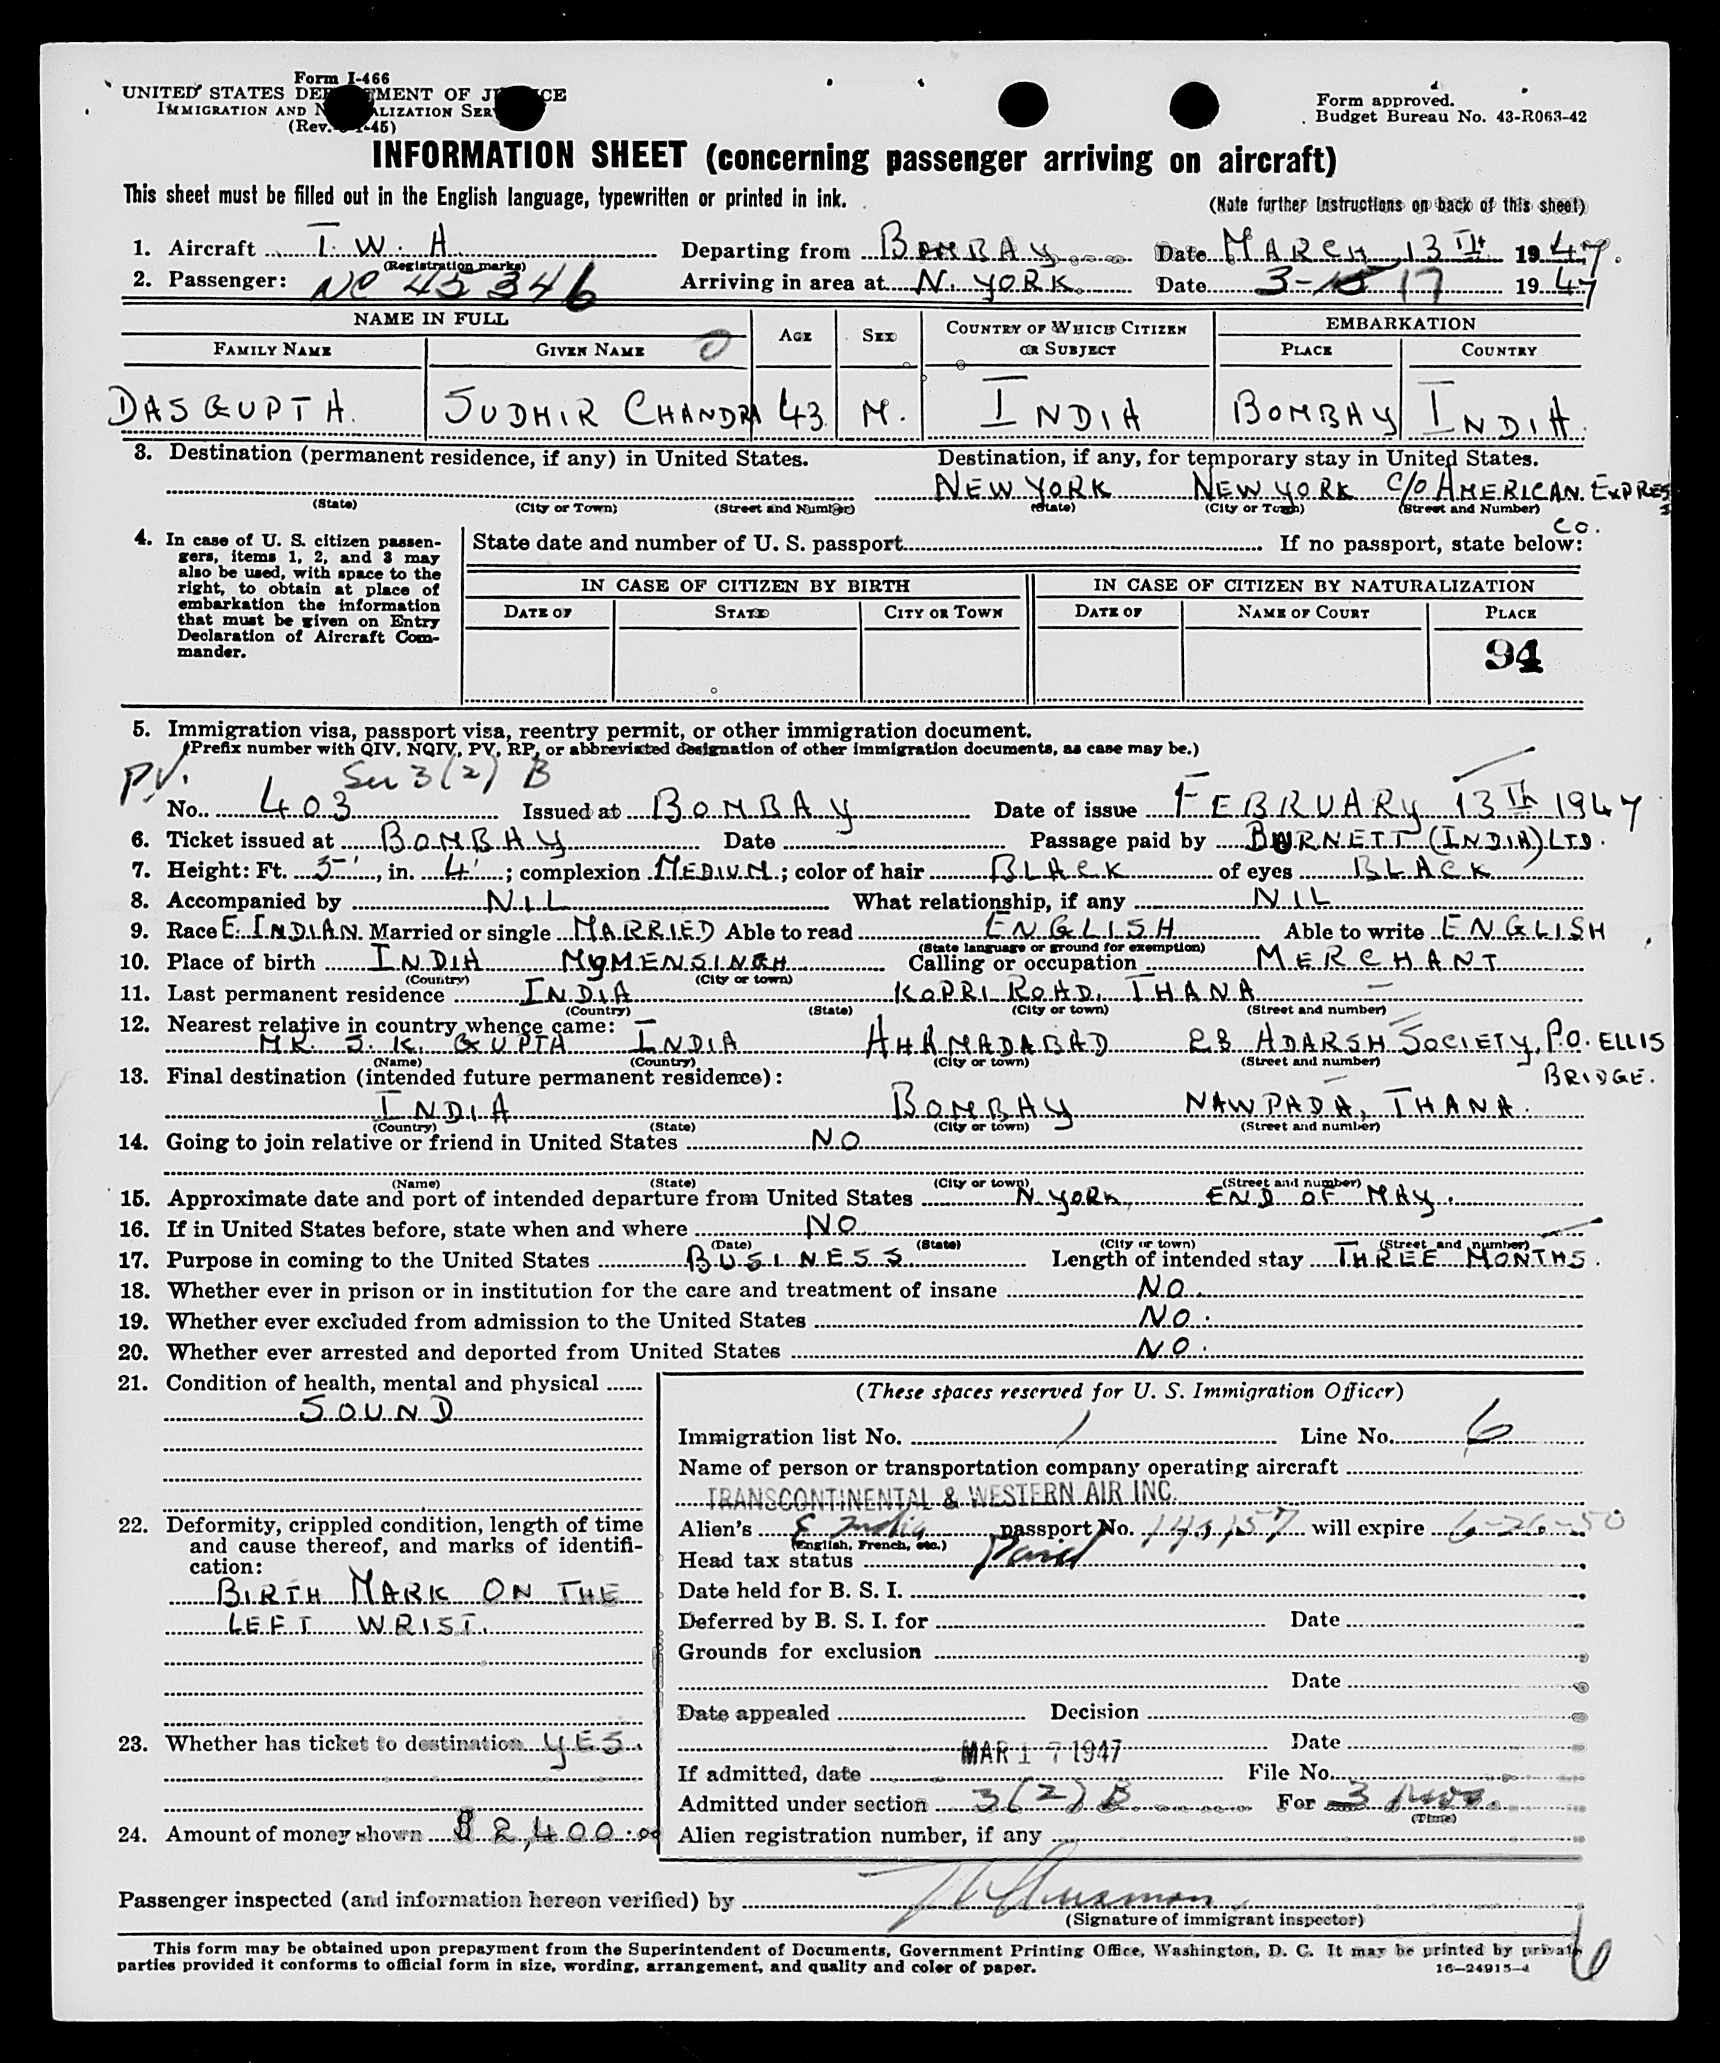 Form I-466
UNITED STATES DEPARTMENT OF JUSTICE
IMMIGRATION AND NATURALIZATION SERVICE
(Rev. -45)
Form approved.
Budget Bureau No. 43-R063-42
INFORMATION SHEET (concerning passenger arriving on aircraft)
This sheet must be filled out in the English language, typewritten or printed in ink.
(Note further instructions on back of this sheet)
1. Aircraft T. W. A. Departing from BOMBAY Date MARCH 13TH 1947.
(Registration marks)
2. Passenger: NC 45346 Arriving in area at N. YORK. Date 3-15 17 1947
NAME IN FULL
FAMILY NAME GIVEN NAME 0 AGE SEX COUNTRY OF WHICH CITIZEN OR SUBJECT EMBARKATION PLACE COUNTRY
DASGUPTA. SUDHIR CHANDRA 43. M. INDIA BOMBAY INDIA.
3. Destination (permanent residence, if any) in United States. Destination, if any, for temporary stay in United States.
NEW YORK NEW YORK C/O AMERICAN EXPRESS CO.
(State) (City or Town) (Street and Number) (State) (City or Town) (Street and Number)
4. In case of U. S. citizen passengers, items 1, 2, and 3 may also be used, with space to the right, to obtain at place of embarkation the information that must be given on Entry Declaration of Aircraft Commander.
State date and number of U. S. passport If no passport, state below:
IN CASE OF CITIZEN BY BIRTH IN CASE OF CITIZEN BY NATURALIZATION
DATE OF STATE CITY OR TOWN DATE OF NAME OF COURT PLACE
94
5. Immigration visa, passport visa, reentry permit, or other immigration document.
(Prefix number with QIV, NQIV, PV, RP, or abbreviated designation of other immigration documents, as case may be.)
P.V. Sec 3(2) B
No. 403 Issued at BOMBAY Date of issue FEBRUARY 13TH 1947
6. Ticket issued at BOMBAY Date Passage paid by BURNETT (INDIA) LTD.
7. Height: Ft. 5', in. 4'; complexion MEDIUM.; color of hair BLACK of eyes BLACK
8. Accompanied by NIL What relationship, if any NIL
9. Race E. INDIAN. Married or single MARRIED Able to read ENGLISH Able to write ENGLISH
(State language or ground for exemption)
10. Place of birth INDIA MYMENSINGH Calling or occupation MERCHANT
(Country) (City or town)
11. Last permanent residence INDIA KOPRI ROAD, THANA
(Country) (State) (City or town) (Street and number)
12. Nearest relative in country whence came:
MR. S. K. GUPTA INDIA AHAMADABAD 23 ADARSH SOCIETY, P.O. ELLIS BRIDGE.
(Name) (Country) (City or town) (Street and number)
13. Final destination (intended future permanent residence):
INDIA BOMBAY NAWPADA, THANA.
(Country) (State) (City or town) (Street and number)
14. Going to join relative or friend in United States NO
(Name) (State) (City or town) (Street and number)
15. Approximate date and port of intended departure from United States N. YORK, END OF MAY.
16. If in United States before, state when and where NO
(Date) (State) (City or town) (Street and number)
17. Purpose in coming to the United States BUSINESS Length of intended stay THREE MONTHS.
18. Whether ever in prison or in institution for the care and treatment of insane NO.
19. Whether ever excluded from admission to the United States NO.
20. Whether ever arrested and deported from United States NO.
21. Condition of health, mental and physical
SOUND
22. Deformity, crippled condition, length of time and cause thereof, and marks of identification:
BIRTH MARK ON THE
LEFT WRIST.
23. Whether has ticket to destination YES.
24. Amount of money shown $ 2,400.00
(These spaces reserved for U. S. Immigration Officer)
Immigration list No. 1 Line No. 6
Name of person or transportation company operating aircraft
TRANSCONTINENTAL & WESTERN AIR INC.
Alien's E India passport No. will expire 6-26-50
(English, French, etc.)
Head tax status Paid
Date held for B. S. I.
Deferred by B. S. I. for Date
Grounds for exclusion
Date
Date appealed Decision
Date
MAR 17 1947
If admitted, date File No.
Admitted under section 3(2) B For 3 mos.
(Time)
Alien registration number, if any
Passenger inspected (and information hereon verified) by
(Signature of immigrant inspector)
This form may be obtained upon prepayment from the Superintendent of Documents, Government Printing Office, Washington, D. C. It may be printed by private
parties provided it conforms to official form in size, wording, arrangement, and quality and color of paper.
16—24915-1
6